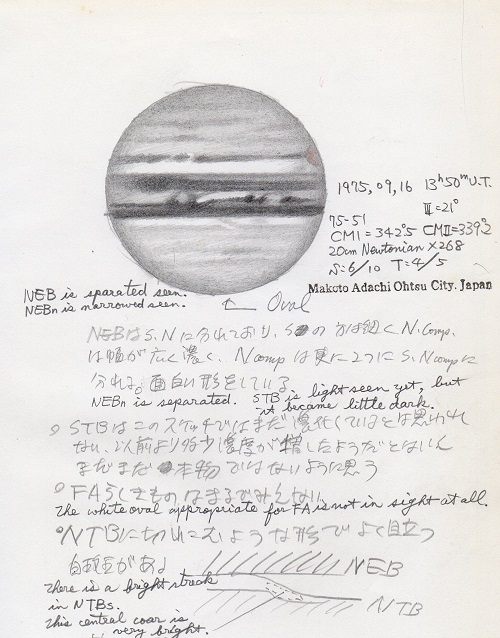 1975, 09, 16 13h50m U.T.
II=21°
75-51
CMI=342°.5 CMII=339°.2
20cm Newtonian ×268
S=6/10 T=4/5
Makoto Adachi Ohtsu City. Japan
NEB is sparated seen.
NEBn is narrowed seen.
← Oval
NEBはS.Nに分れており、Sの方は細くN.comp.
は幅が広く濃く、Ncompは更に2つにS.Ncompに
分れる。面白い形をしている
NEBn is separated. STB is light seen yet, but
it became little dark.
STBはこのスケッチではまだ濃化しているとは思われ
ない、以前より多少濃度が増したようだとはいえ
まだまだ本物ではないように思う
FAらしきものはまるでみえない
The white oval appropriate for FA is not in sight at all.
NTBに切れこむような形でよく目立つ
白斑がある
there is a bright streak
in NTBs.
this central coar is
very bright.
NEB
NTB